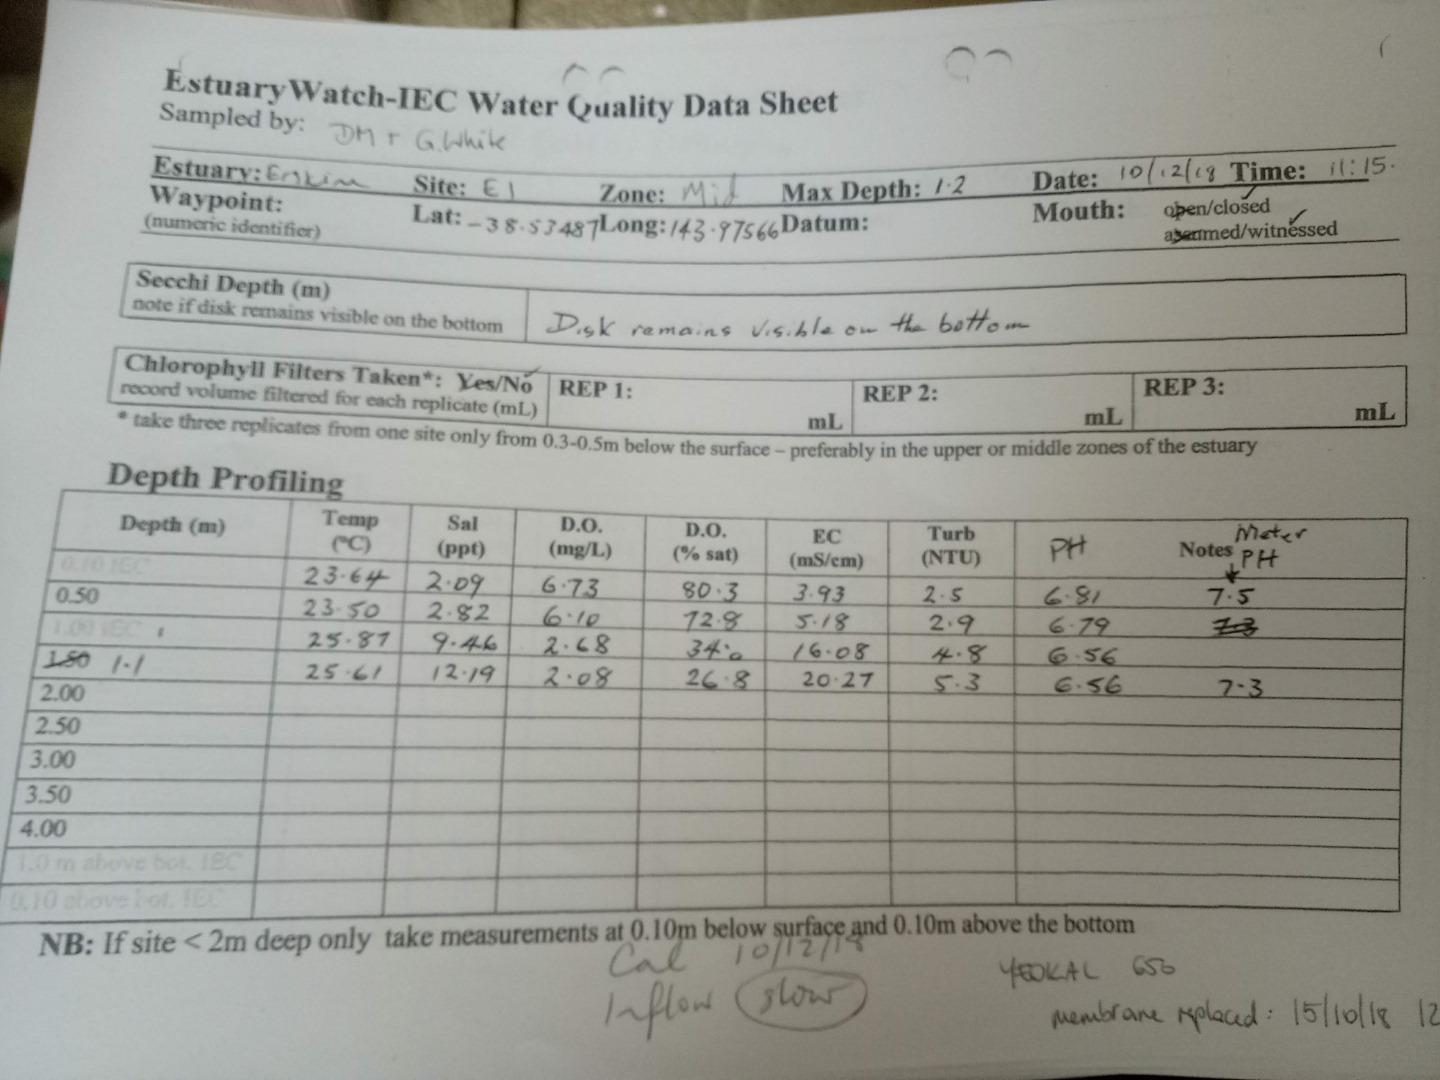 EstuaryWatch-IEC Water Quality Data Sheet
Sampled by: DM + G.White
Estuary: Erskine Site: E1 Zone: Mid Max Depth: 1.2 Date: 10/12/18 Time: 11:15.
Waypoint: Lat: -38.53487 Long: 143.97566 Datum: Mouth: open/closed
(numeric identifier) assumed/witnessed
Secchi Depth (m)
note if disk remains visible on the bottom Disk remains visible on the bottom
Chlorophyll Filters Taken*: Yes/No REP 1: REP 2: REP 3:
record volume filtered for each replicate (mL) mL mL mL
* take three replicates from one site only from 0.3-0.5m below the surface – preferably in the upper or middle zones of the estuary
Depth Profiling
Depth (m) Temp (°C) Sal (ppt) D.O. (mg/L) D.O. (% sat) EC (mS/cm) Turb (NTU) PH Notes Meter PH
0.10 IEC 23.64 2.09 6.73 80.3 3.93 2.5 6.81 7.5
0.50 23.50 2.82 6.10 72.8 5.18 2.9 6.79 7.3
1.00 IEC 25.87 9.46 2.68 34.0 16.08 4.8 6.56
1.50 1.1 25.61 12.19 2.08 26.8 20.27 5.3 6.56 7.3
2.00
2.50
3.00
3.50
4.00
1.0 m above bot. IEC
0.10 above bot. IEC
NB: If site < 2m deep only take measurements at 0.10m below surface and 0.10m above the bottom
Cal 10/12/18
Inflow slow
YEOKAL 650
membrane replaced: 15/10/18 12